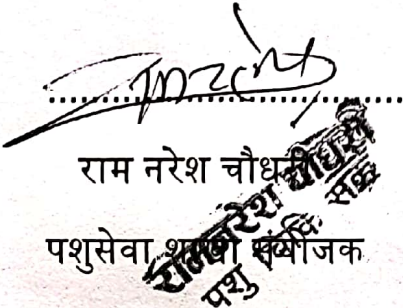 राम नरेश चौधरी
पशुसेवा शाखा संयोजक
रामनरेश चौधरी
पशु